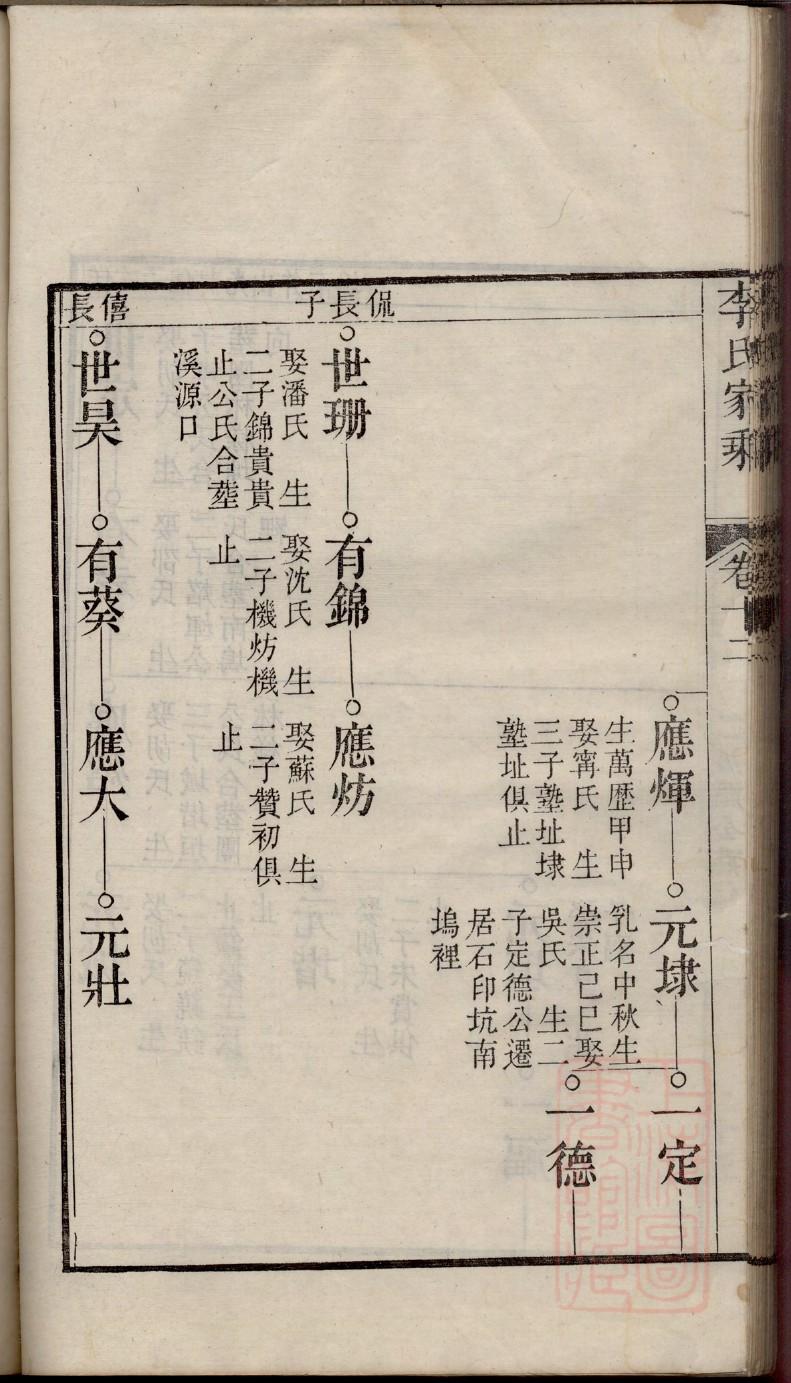 李氏家乘
卷十二
應煇
生萬歷甲申
娶甯氏　生
三子塾址埭
塾址俱止
元埭
乳名中秋生
崇正己巳娶
吳氏　生二
子定德公遷
居石印坑南
塢裡
一定
一德
侃長子
世珊
娶潘氏　生
二子錦貴貴
止公氏合塟
溪源口
有錦
娶沈氏　生
二子機炘機
止
應炘
娶蘇氏　生
二子贊初俱
止
僖長
世昊
有葵
應大
元壯